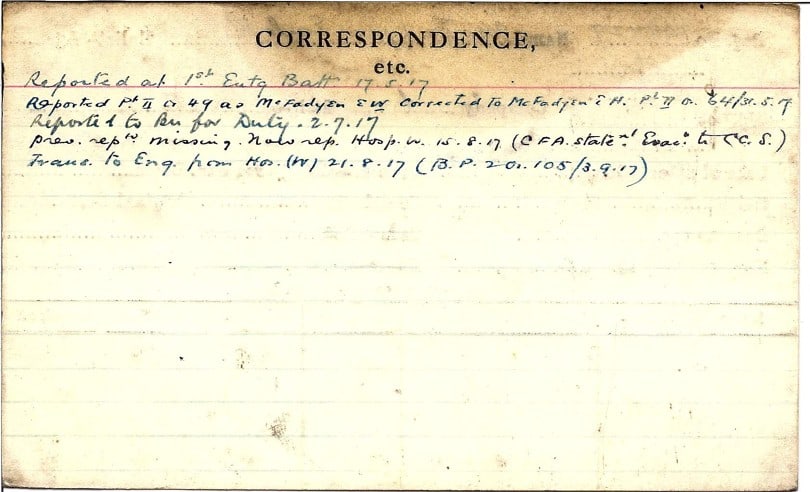 CORRESPONDENCE,
etc.
Reported at 1st Entg Batt 17.5.17
Reported Pt II O. 49 as McFadyen E W Corrected to McFadyen E H. Pt II O. 64/31.5.17
Reported to Bn for Duty. 2.7.17
prev. reptd missing. Now rep. Hosp. W. 15.8.17 (C F A. statemt Evacd to C C. S.)
Trans. to Eng from Hos. (W) 21.8.17 (B. P. 2 O. 105/3.9.17)